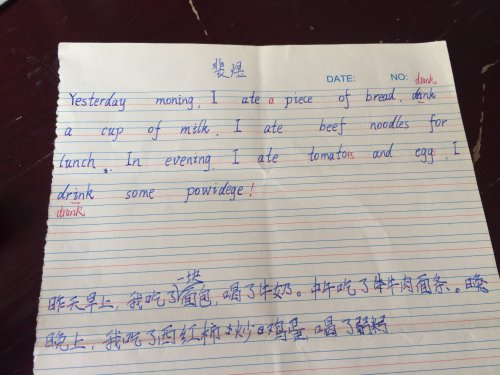 裴煜
DATE: NO: drank
Yesterday moning, I ate a piece of bread, drink
a cup of milk, I ate beef noodles for
lunch. In evening, I ate tomatois and egg, I
drink some powidege!
drank
一块
昨天早上,我吃了面包,喝了牛奶。中午吃了牛肉面条。晚
晚上,我吃了西红柿炒鸡蛋,喝了